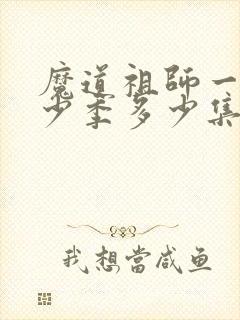 魔道祖師一
少季多少集
我想當咸鱼